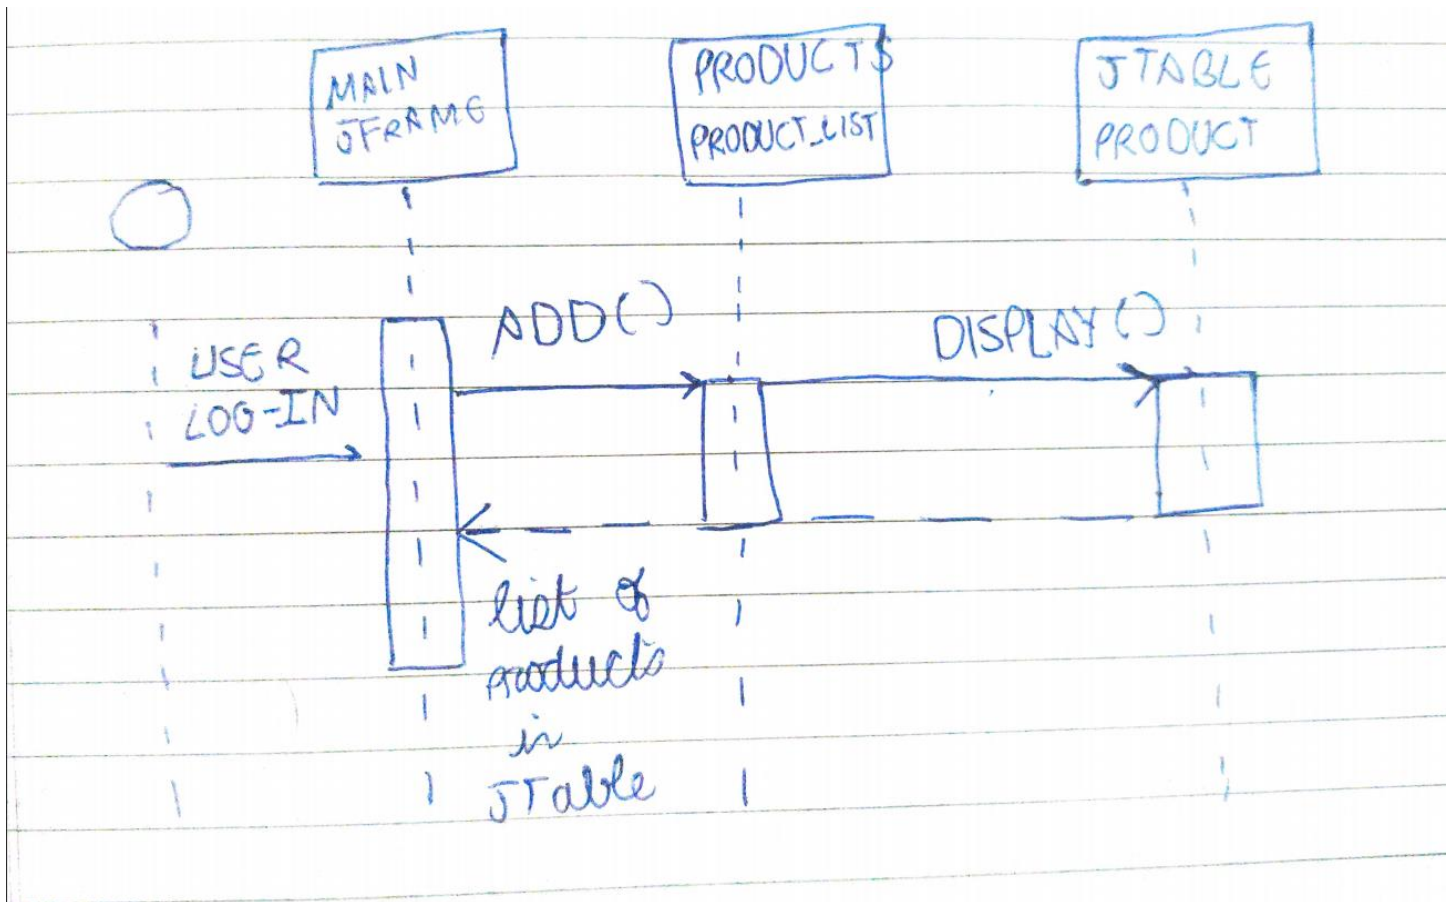 MAIN
JFRAME
PRODUCTS
PRODUCT_LIST
JTABLE
PRODUCT
USER
LOG-IN
ADD()
DISPLAY()
list of
products
in
JTable